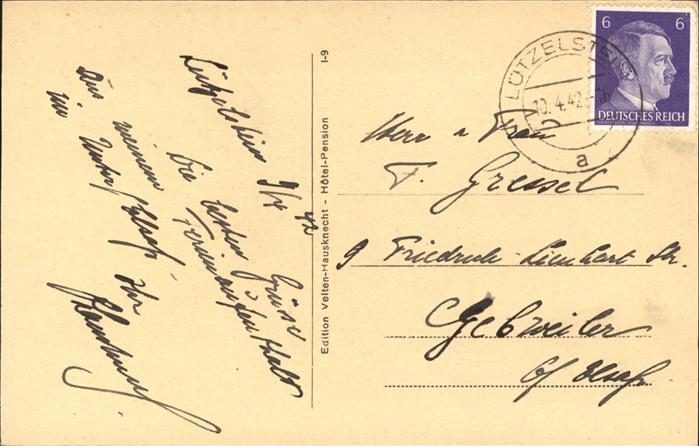 Lützelstein 9/4 42
Die besten Grüsse
aus meinem Ferienaufenthalt
im Unter Elsass. Ihr
Edition Velten-Hausknecht - Hôtel-Pension I-9
LÜTZELSTEIN
10.4.42
a
6 6
DEUTSCHES REICH
Herr u Frau
F. Gressel
9 Friedrich-Lienhart Str.
Gebweiler
O/ Elsass